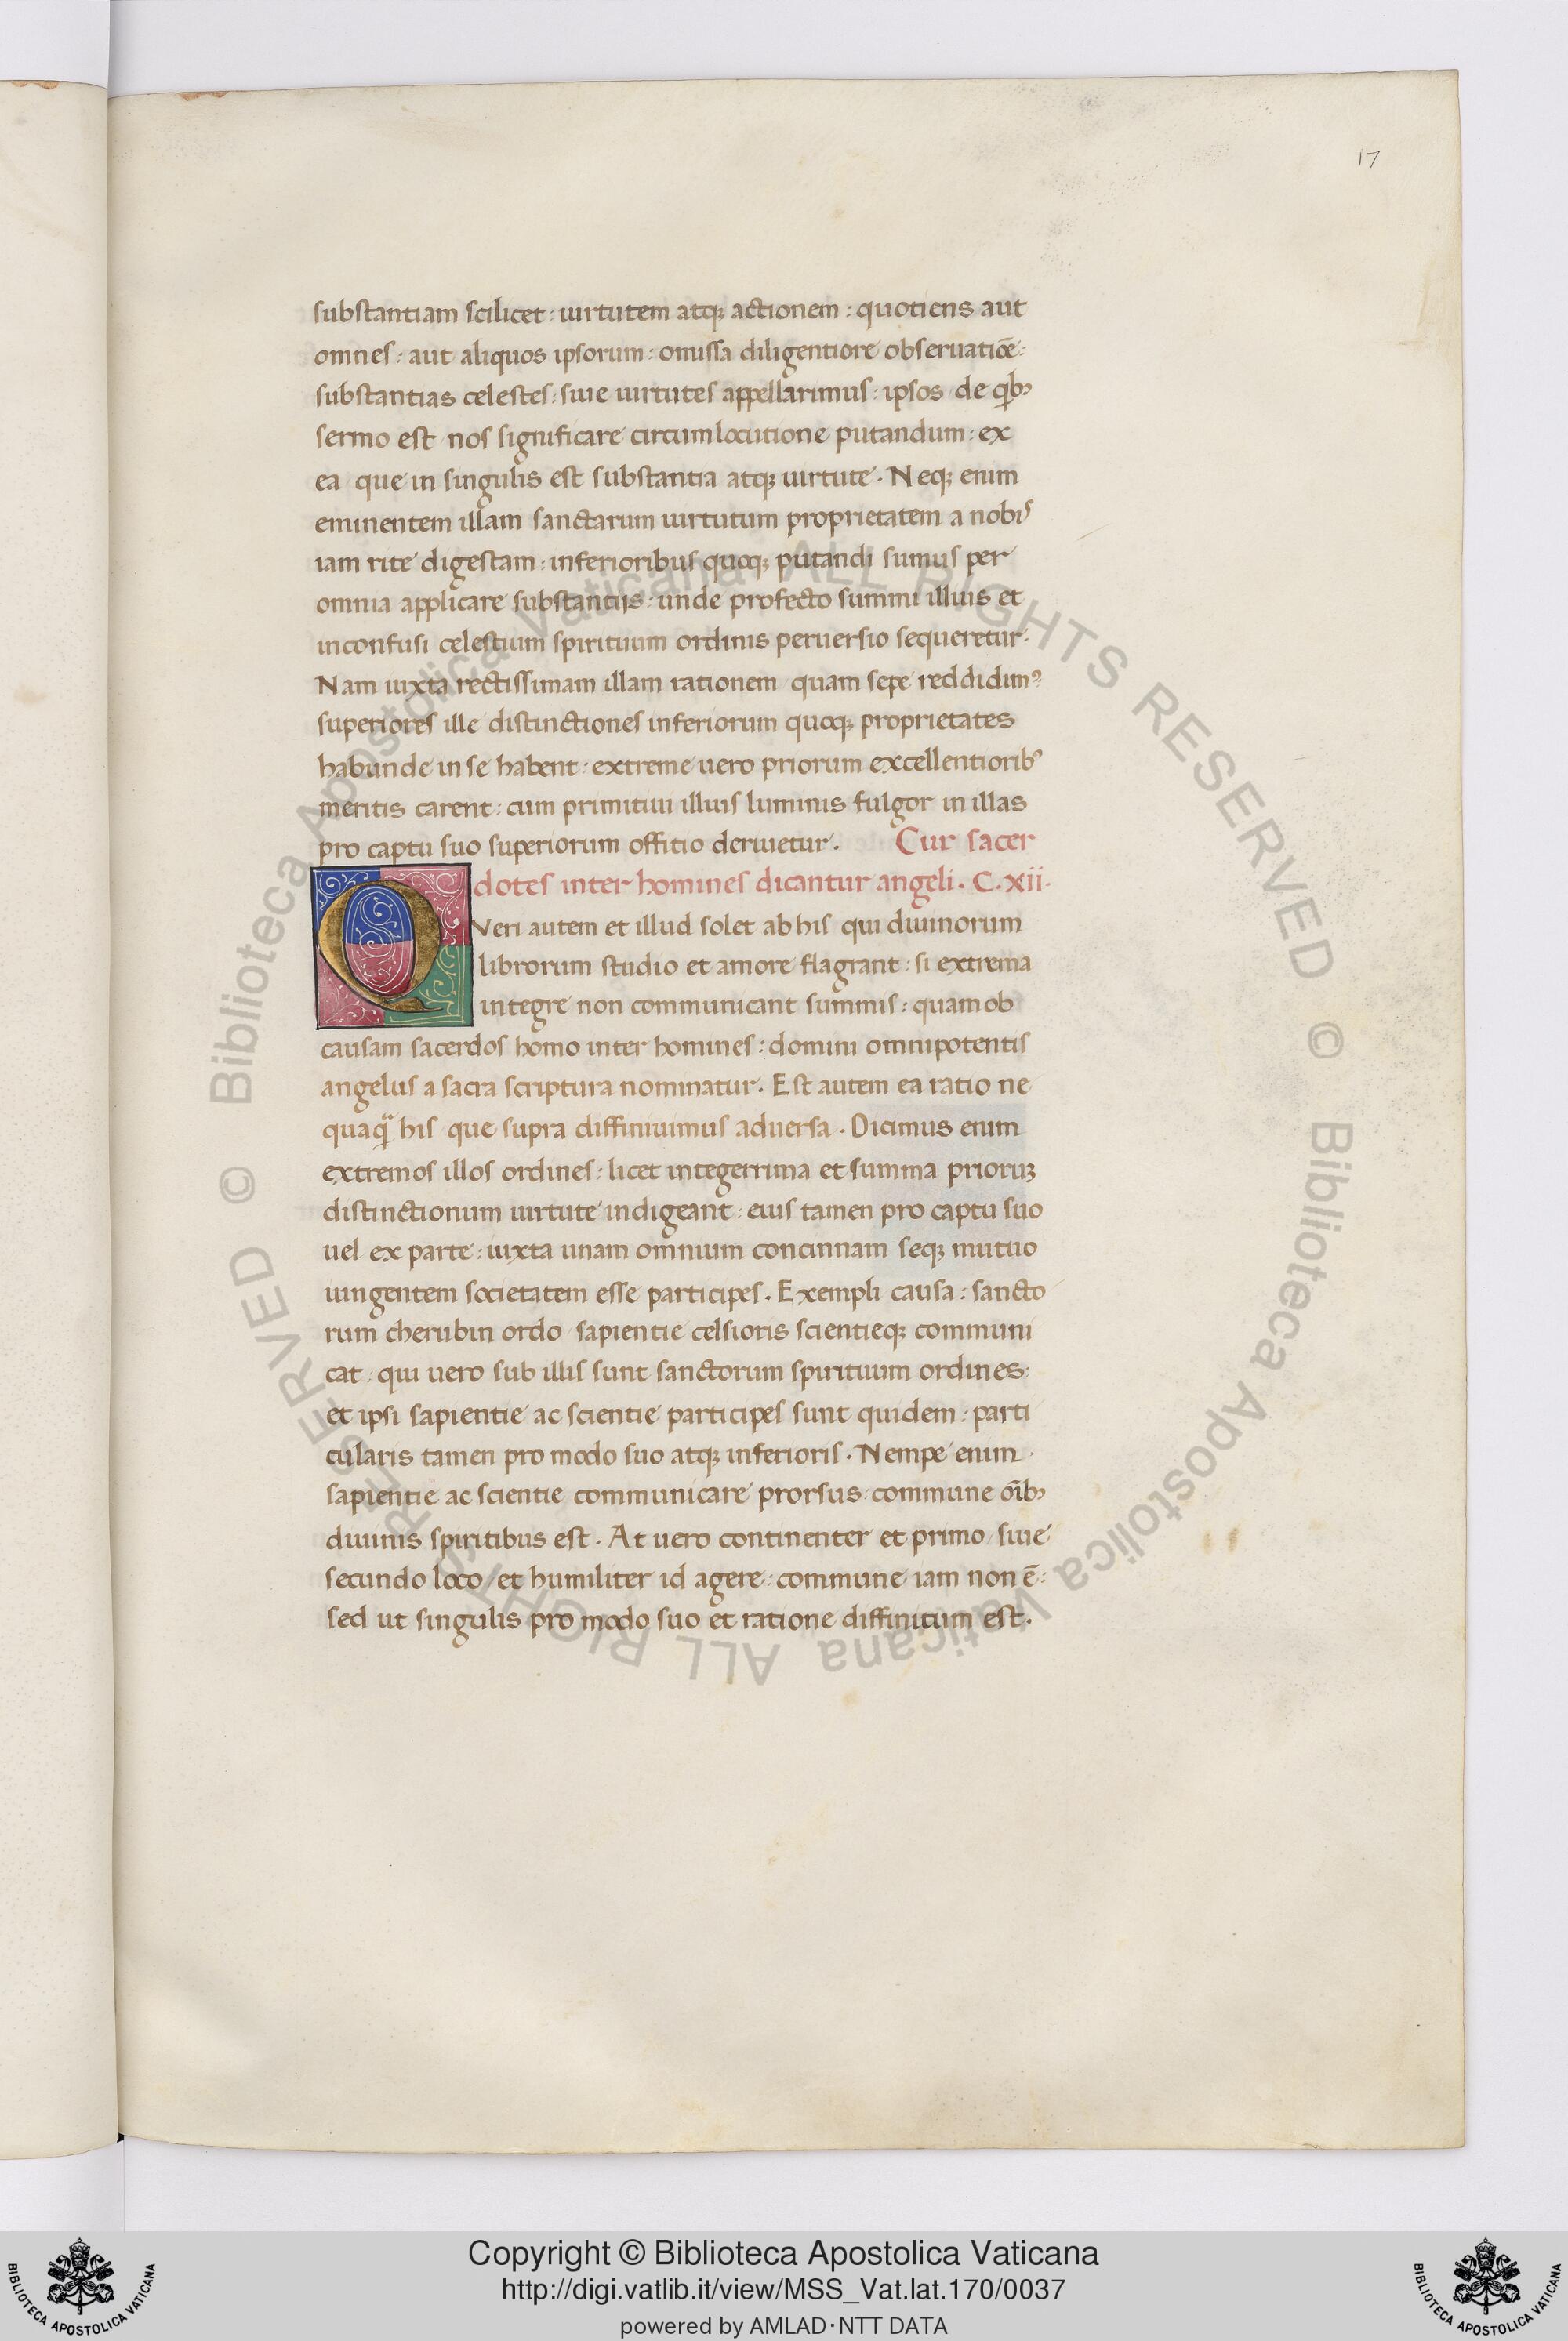 17
substantiam scilicet: uirtutem atq; actionem: quotiens aut
omnes: aut aliquos ipsorum: omissa diligentiore obseruatiōe:
substantias celestes: siue uirtutes appellarimus: ipsos de qb;
sermo est nos significare circumlocutione putandum: ex
ea que in singulis est substantia atq; uirtute. Neq; enim
eminentem illam sanctarum uirtutum proprietatem a nobis
iam rite digestam: inferioribus quoq; putandi sumus per
omnia applicare substantijs: unde profecto summi illius et
inconfusi celestium spirituum ordinis peruersio sequeretur.
Nam iuxta rectissimam illam rationem quam sepe reddidim9
superiores ille distinctiones inferiorum quoq; proprietates
habunde in se habent: extreme uero priorum excellentiorib9
meritis carent: cum primitiui illius luminis fulgor in illas
pro captu suo superiorum offitio deriuetur. Cur sacer
dotes inter homines dicantur angeli. C. xii.
QVeri autem et illud solet ab his qui diuinorum
librorum studio et amore flagrant: si extrema
integre non communicant summis: quam ob
causam sacerdos homo inter homines: domini omnipotentis
angelus a sacra scriptura nominatur. Est autem ea ratio ne
quaq̄ his que supra diffiniuimus aduersa. Dicimus enim
extremos illos ordines: licet integerrima et summa prioru;
distinctionum uirtute indigeant: eius tamen pro captu suo
uel ex parte: iuxta unam omnium concinnam seq; mutuo
iungentem societatem esse participes. Exempli causa: sancto
rum cherubin ordo sapientie celsioris scientieq; communi
cat: qui uero sub illis sunt sanctorum spirituum ordines:
et ipsi sapientie ac scientie participes sunt quidem: parti
cularis tamen pro modo suo atq; inferioris. Nempe enim
sapientie ac scientie communicare prorsus commune oīb;
diuinis spiritibus est. At uero continenter et primo / siue
secundo loco / et humiliter id agere: commune iam non ē:
sed ut singulis pro modo suo et ratione diffinitum est.
© Biblioteca Apostolica Vaticana ALL RIGHTS RESERVED
© Biblioteca Apostolica Vaticana ALL RIGHTS RESERVED
Copyright © Biblioteca Apostolica Vaticana
http://digi.vatlib.it/view/MSS_Vat.lat.170/0037
powered by AMLAD·NTT DATA
BIBLIOTECA APOSTOLICA VATICANA
BIBLIOTECA APOSTOLICA VATICANA